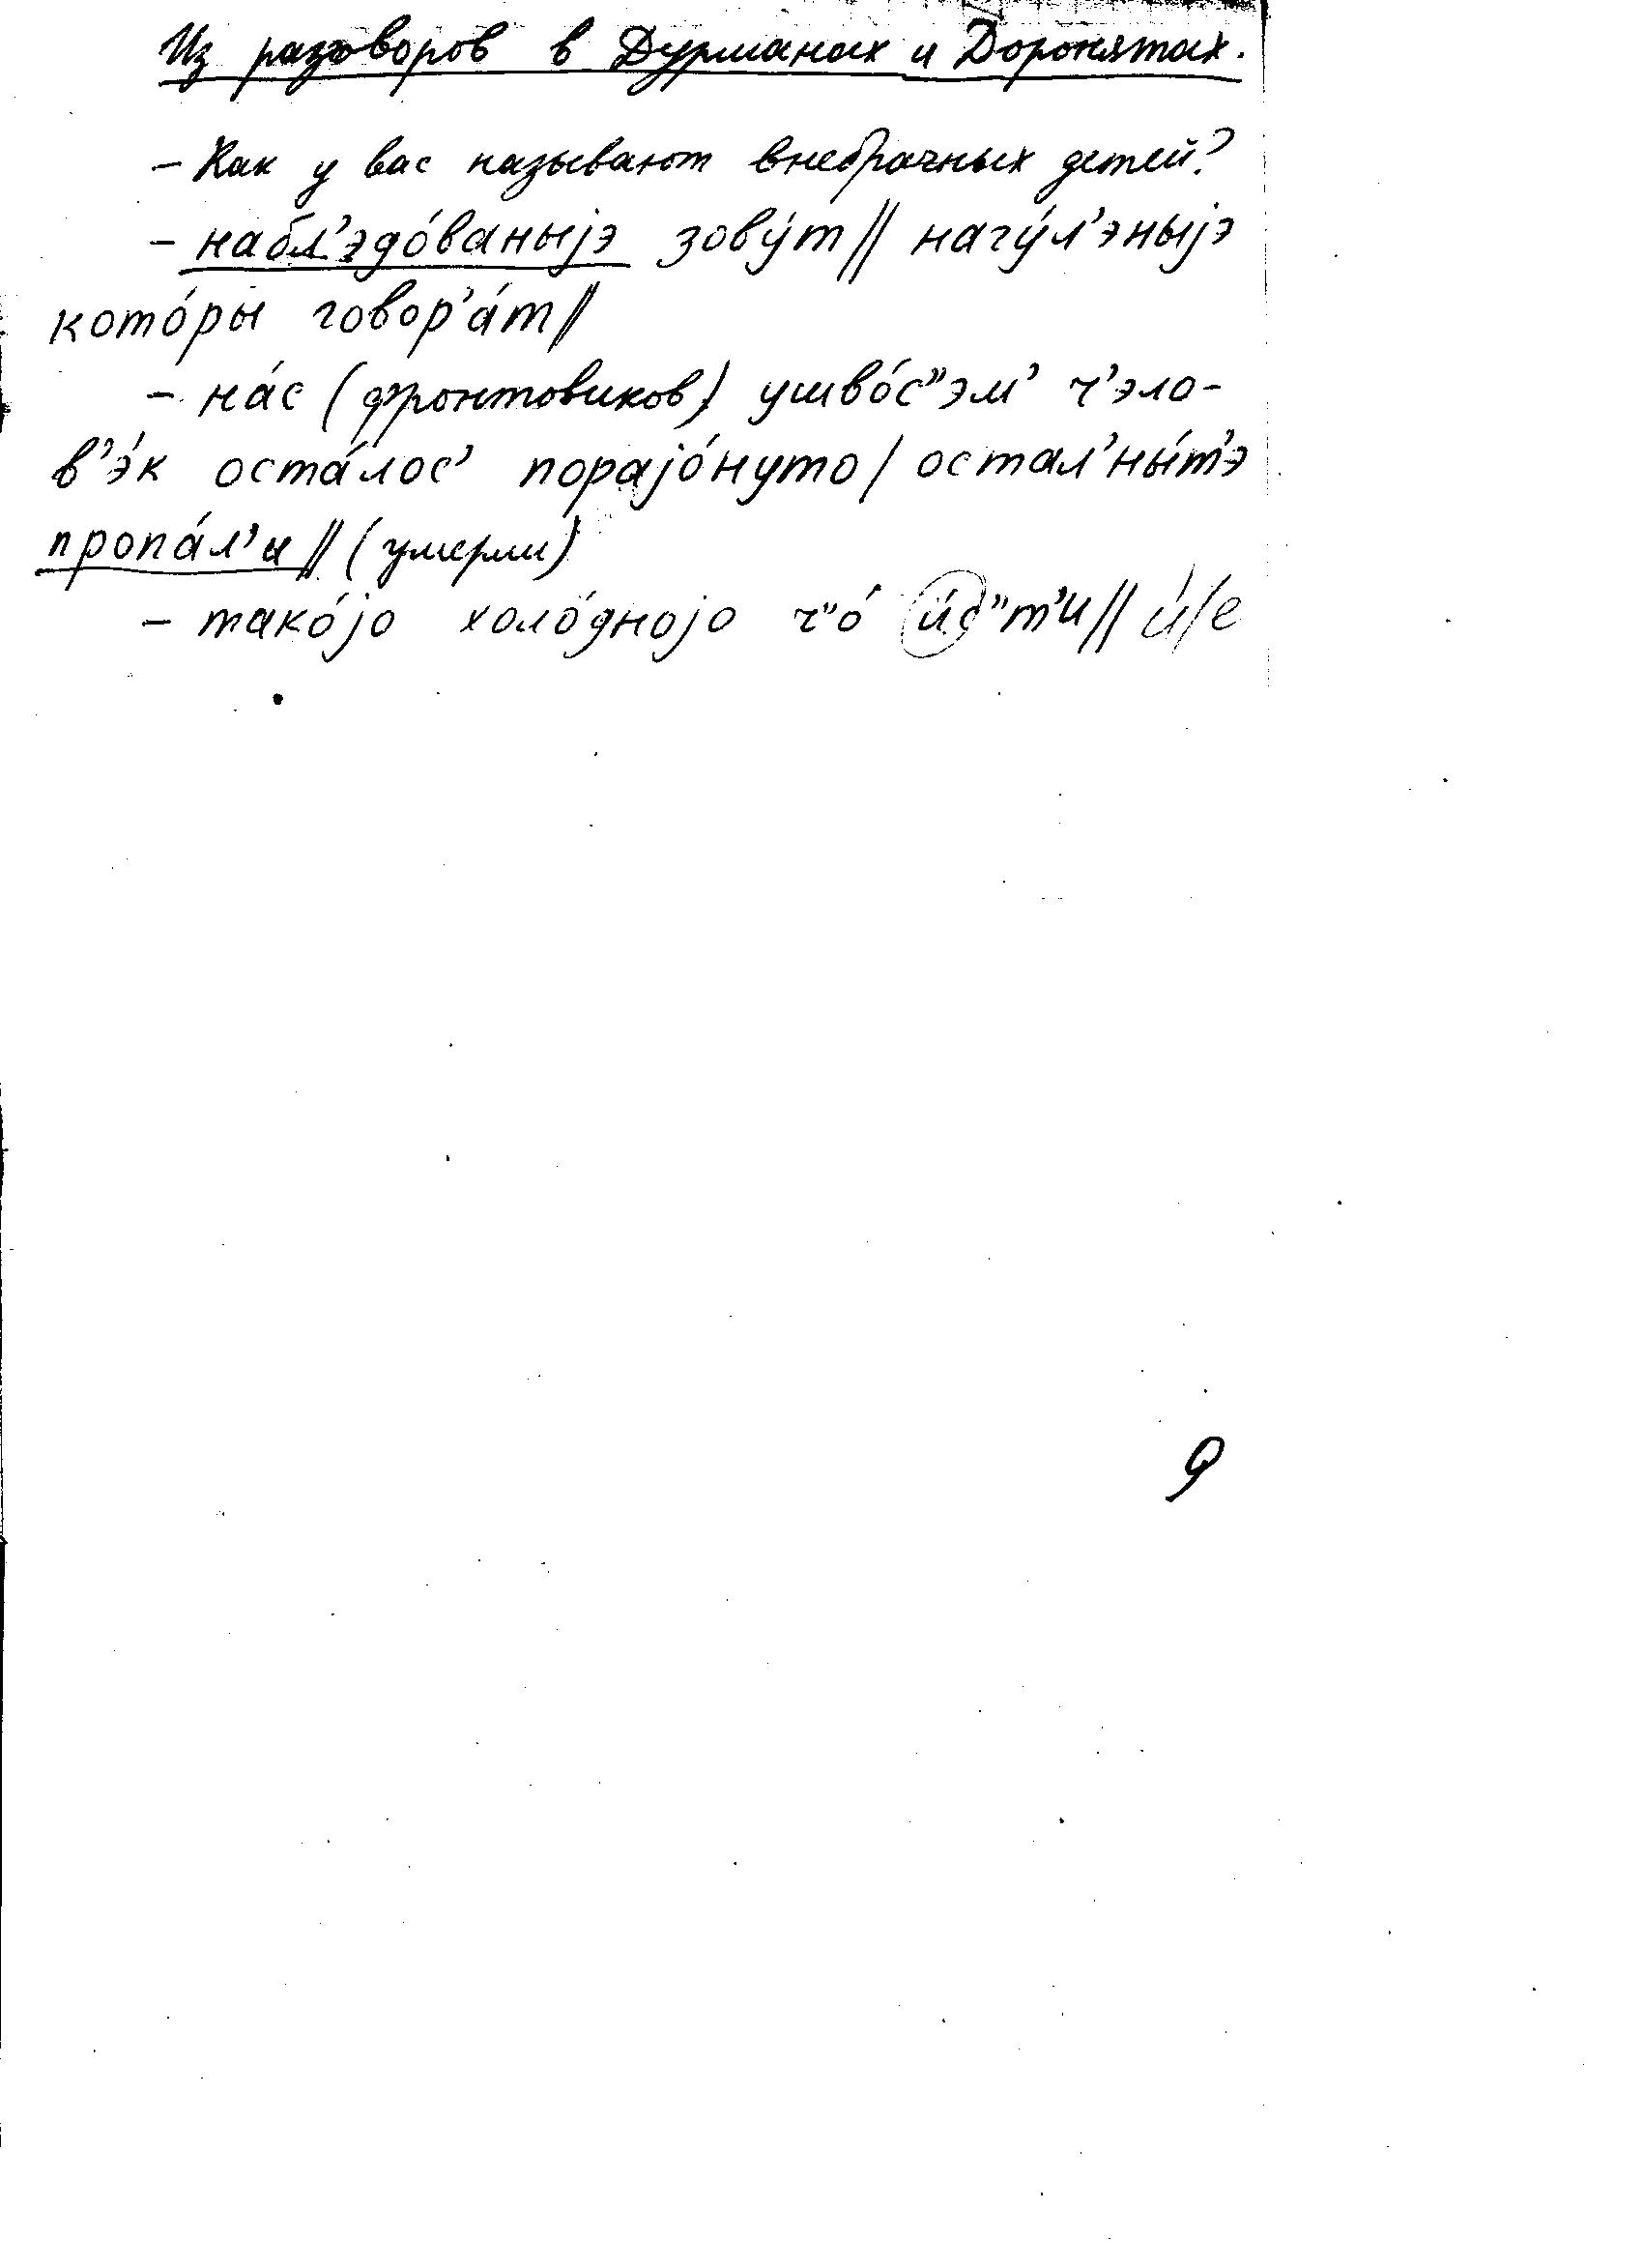 Из разговоров в Дурманах и Доронятах.
– Как у вас называют внебрачных детей?
– набл’эдо́ваныjэ зову́т // нагу́л’эныjэ
кото́ры говор’а́т //
– на́с (фронтовиков) ушво́с”эм’ ч’эло-
в’э́к оста́лос’ пораjо́нуто / остал’ны́т’э
пропа́л’и // (умерли)
– тако́jо холо́дноjо ч”о́ и́с”т’и // и́/е
9